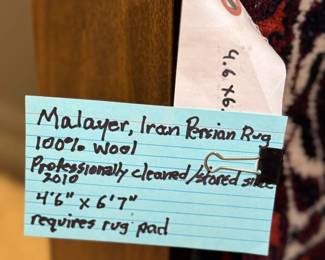 4.6 x6.
Malayer, Iran Persian Rug
100% Wool
Professionally cleaned/stored since
2010
4'6" x 6'7"
requires rug pad